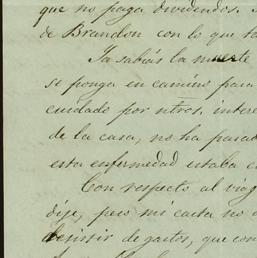 que no paga dividendos.
de Brandon con lo que
Ya sabias la muerte
se ponga en camino para
cuidado por ntros. intere
de la casa, no ha parad
esta enfermedad estaba
Con respecto al viag
dije, pero mi carta no
desistir de gastos, que con